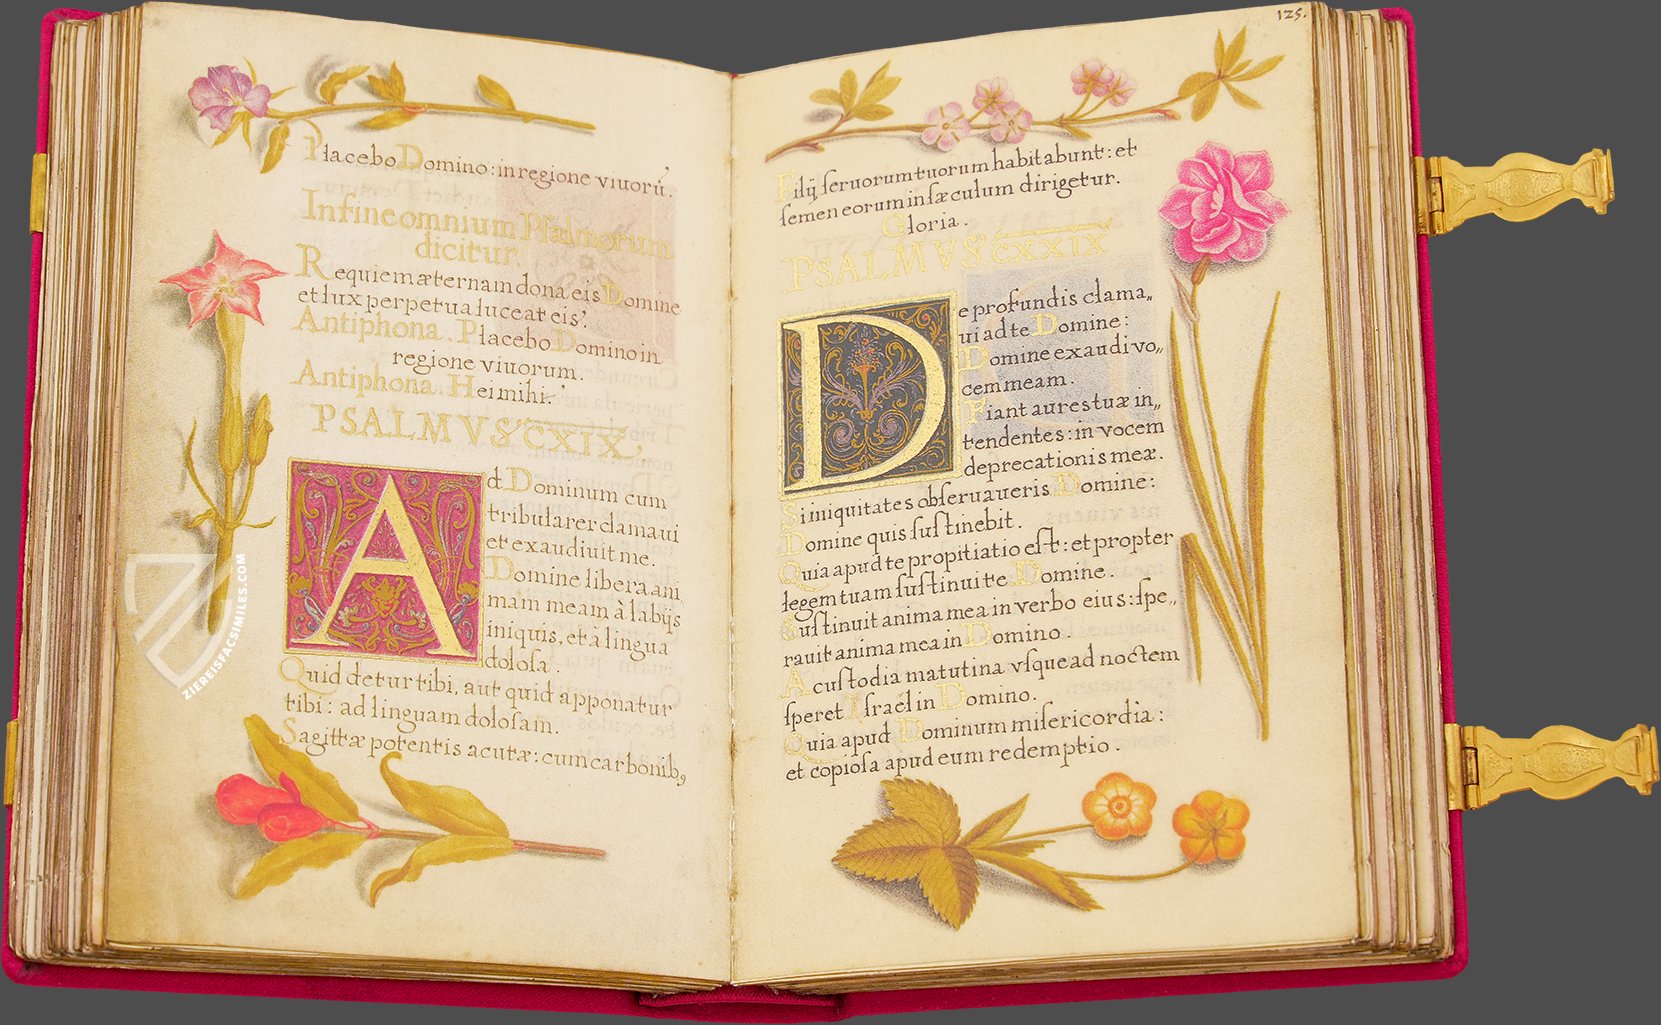 Placebo Domino: in regione viuorũ.
In fine omnium Psalmorum
dicitur.
Requiem æternam dona eis Domine
et lux perpetua luceat eis.
Antiphona. Placebo Domino in
regione viuorum.
Antiphona. Hei mihi.
PSALMVS CXIX
Ad Dominum cum
tribularer clamaui
et exaudiuit me.
Domine libera ani,,
mam meam à labijs
iniquis, et à lingua
dolosa.
Quid detur tibi, aut quid apponatur
tibi: ad linguam dolosam.
Sagittæ potentis acutæ: cum carbonib,
ZIEREISFACSIMILES.COM
125.
Filij seruorum tuorum habitabunt: et
semen eorum in sæculum dirigetur.
Gloria.
PSALMVS CXXIX
De profundis clama,,
ui ad te Domine:
Domine exaudi vo,,
cem meam.
Fiant aures tuæ in,,
tendentes: in vocem
deprecationis meæ.
Si iniquitates obseruaueris Domine:
Domine quis sustinebit.
Quia apud te propitiatio est: et propter
legem tuam sustinui te Domine.
Sustinuit anima mea in verbo eius: spe,,
rauit anima mea in Domino.
A custodia matutina vsque ad noctem
speret Israël in Domino.
Quia apud Dominum misericordia:
et copiosa apud eum redemptio.